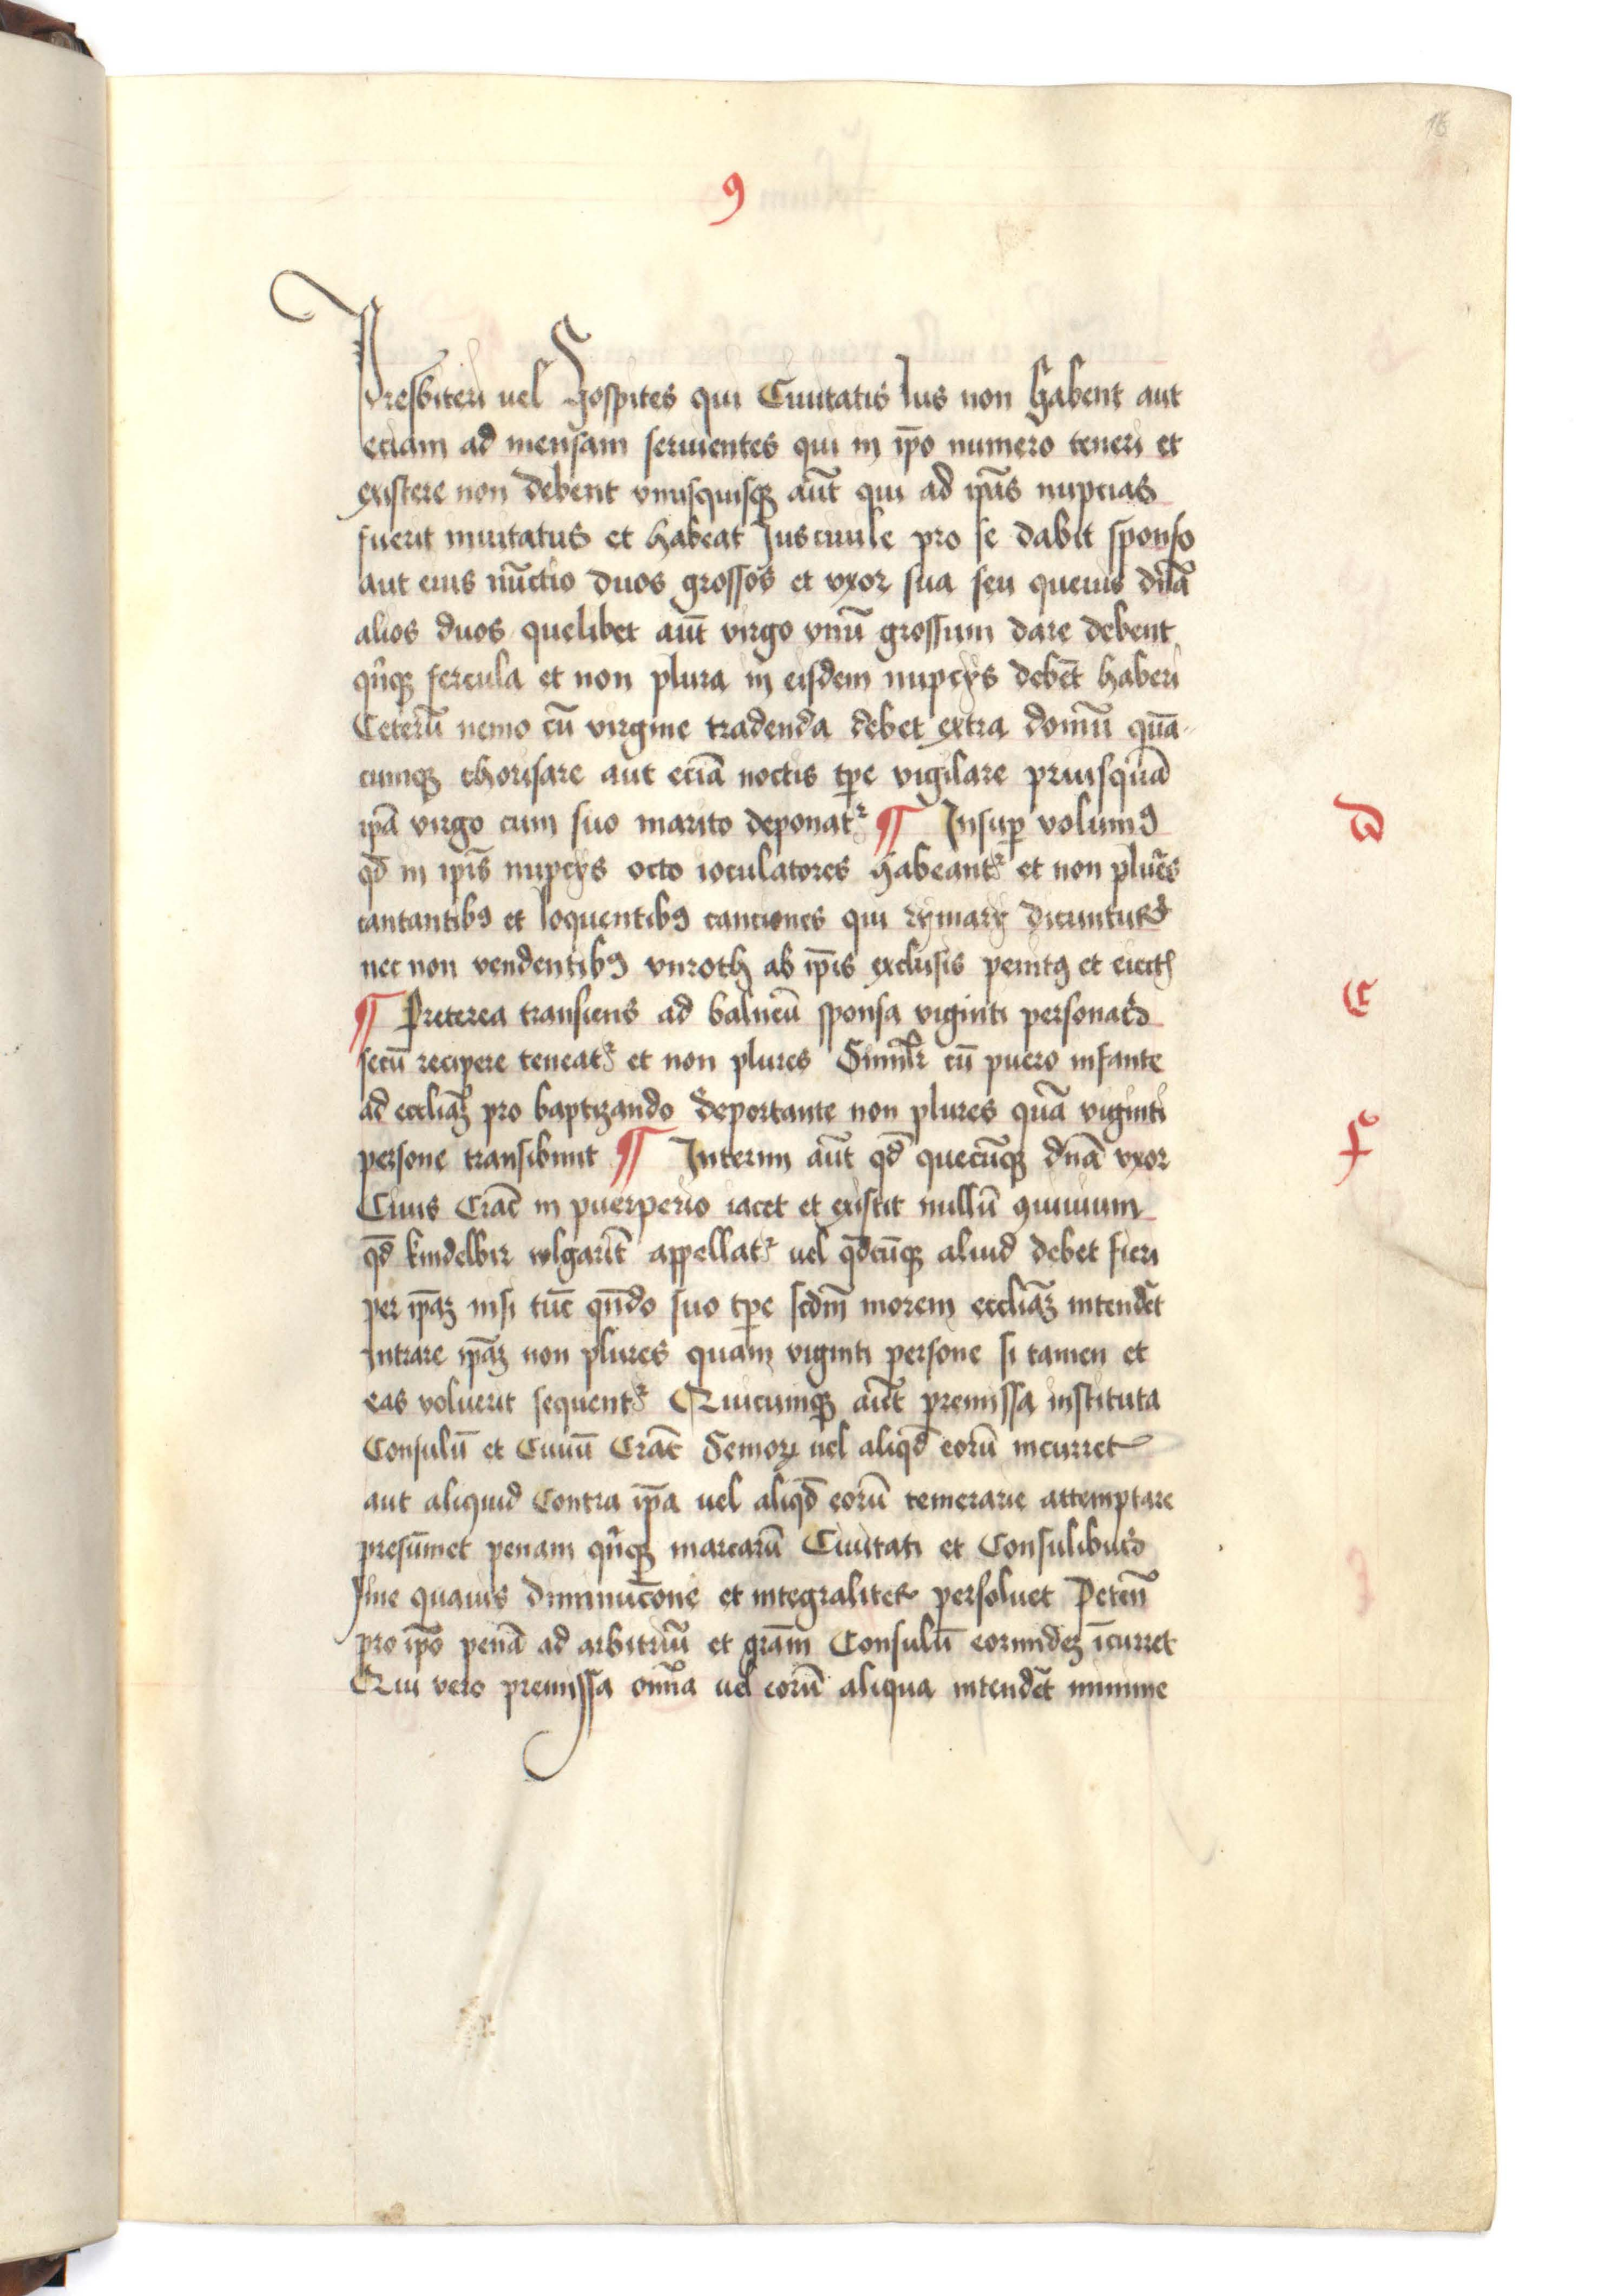 16
9
Presbiteri uel Hospites qui Ciuitatis Ius non habent aut
eciam ad mensam seruientes qui in ip̄o numero teneri et
existere non debent vnusquisqꝫ aūt qui ad ip̄as nupcias
fuerit inuitatus et habeat Jus ciuile pro se dabit sponso
aut eius nūctio duos grossos et vxor sua seu queuis dn̄a
alios duos quelibet aūt virgo vnū grossum dare debent
qn̄qꝫ fercula et non plura in eisdem nupcys debēt haberi
Ceterū nemo cū virgine tradenda debet extra domū quā-
cumqꝫ chorisare aut eciā noctis tꝑe vigilare priusquā
ip̄a virgo cum suo marito deponatᷣ ¶ Insuꝑ volumꝯ
qd̄ in ip̄is nupcys octo ioculatores habeantᷣ et non plur̄es
cantantibꝯ et loquentibꝯ canciones qui rymary dicuntur
nec non vendentibꝯ vnroth ab ip̄is exclusis penitꝯ et eiect̄
¶ Preterea transiens ad balneū sponsa viginti personas
secū recipere teneatᷣ et non plures Simil̄r cū puero infante
ad eccliāꝫ pro baptizando deportante non plures quā viginti
persone transibunt ¶ Interim aūt qd̄ quecūqꝫ dn̄a vxor
Ciuis Crac̄ in puerperio iacet et existit nullū ꝯuiuium
qd̄ kindelbir wlgarit̄ appellatᷣ uel qd̄cūqꝫ aliud debet fieri
per ip̄aꝫ nisi tūc qn̄do suo tꝑe scdm̄ morem eccliāꝫ intendēt
Intrare ip̄aꝫ non plures quam viginti persone si tamen et
eas voluerit sequentᷣ Quicumqꝫ aūt premissa instituta
Consulū et Ciuiū Crac̄ Seniorꝝ uel aliqd̄ eorū incurret
aut aliquid Contra ip̄a uel aliqd̄ eorū temerarie attemptare
presūmet penam qn̄qꝫ marcarū Ciuitati et Consulibus
sine quauis diminucōne et integraliter persoluet Peten̄
pro ip̄o penā ad arbitriū et grām Consulū eorundeꝫ īcurret
Qui vero premissa om̄ia uel eorū aliqua intendēt minime
D
E
F